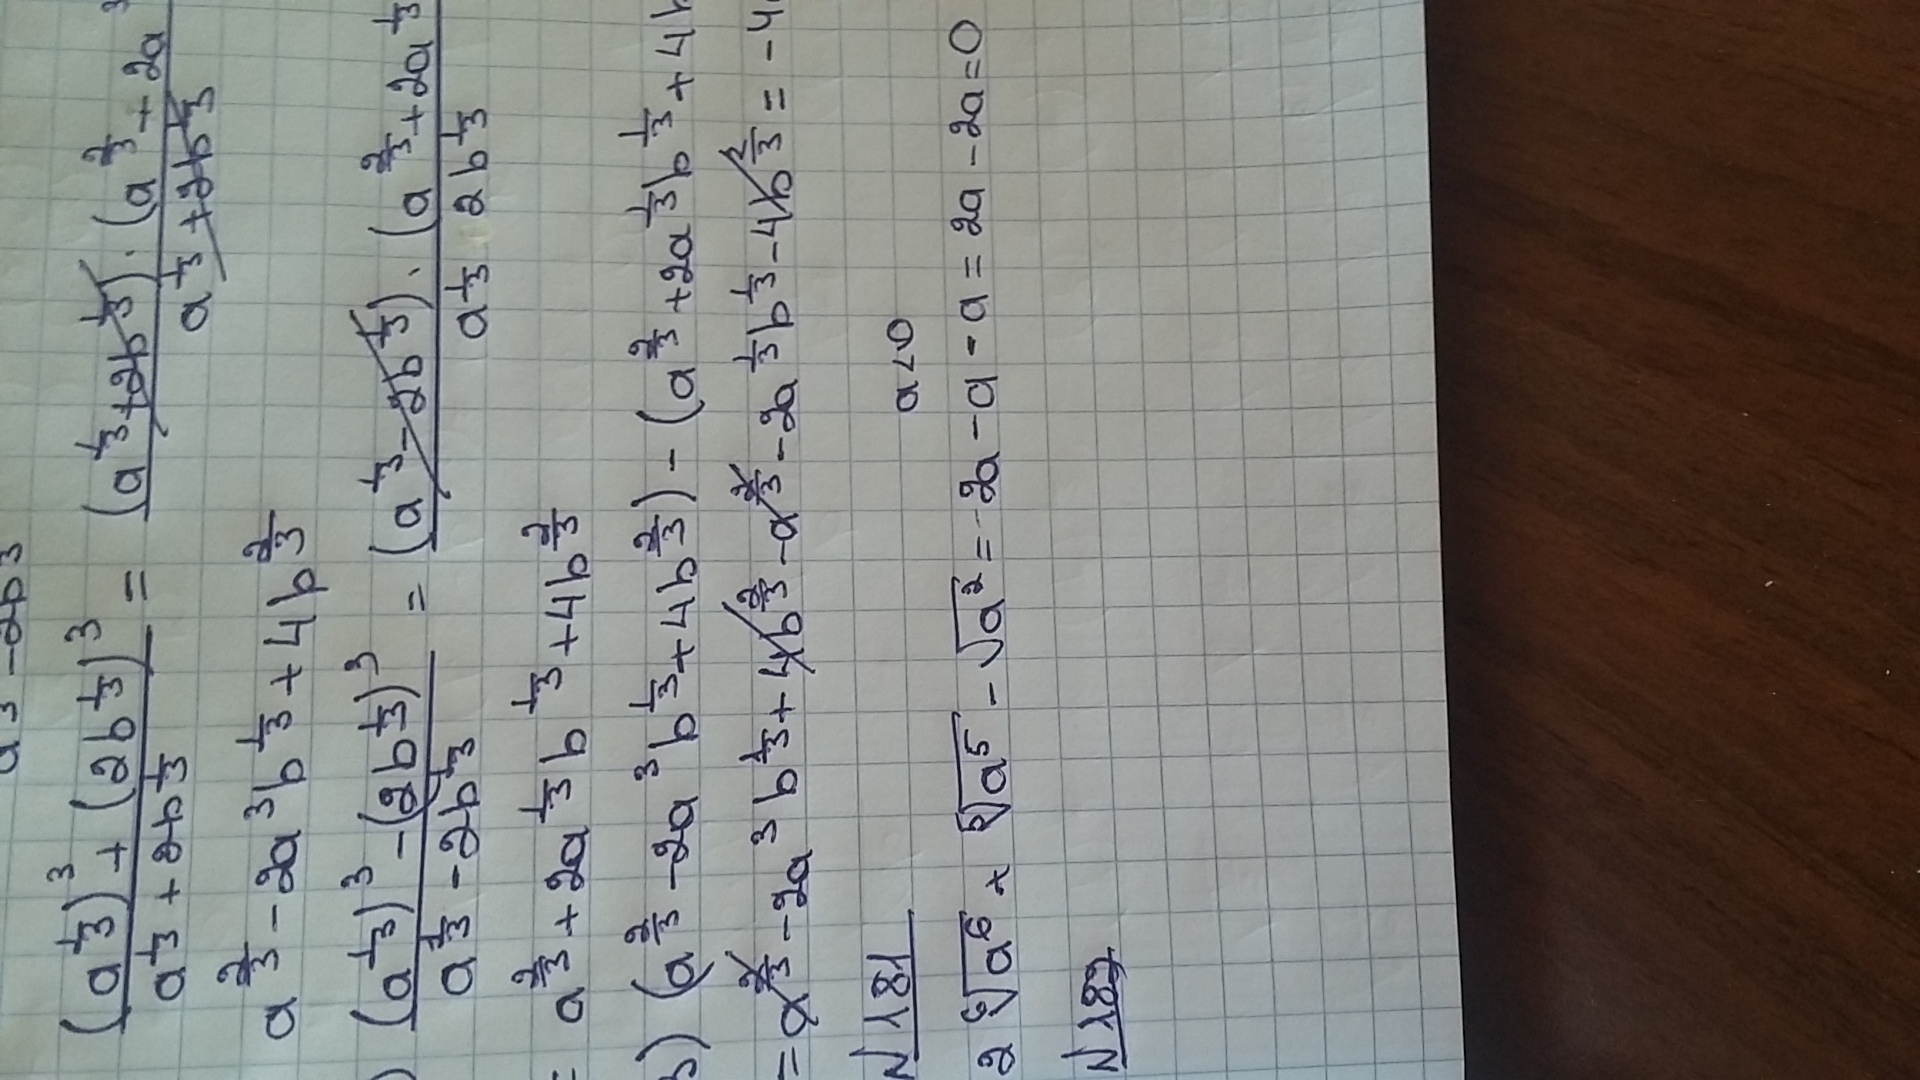 (a^(1/3))^3 + (2b^(1/3))^3 / a^(1/3) + 2b^(1/3) = (a^(1/3) + 2b^(1/3)) · (a^(2/3) + 2a / a^(1/3) + 2b^(1/3)
a^(2/3) - 2a^3 b^(1/3) + 4b^(2/3)
) (a^(1/3))^3 - (2b^(1/3))^3 / a^(1/3) - 2b^(1/3) = (a^(1/3) - 2b^(1/3)) · (a^(2/3) + 2a^(1/3) / a^(1/3) 2b^(1/3)
= a^(2/3) + 2a^(1/3) b^(1/3) + 4b^(2/3)
) (a^(2/3) - 2a^3 b^(1/3) + 4b^(2/3)) - (a^(2/3) + 2a^(1/3) b^(1/3) + 4b
= a^(2/3) - 2a^3 b^(1/3) + 4b^(2/3) - a^(2/3) - 2a^(1/3) b^(1/3) - 4b^(2/3) = -4
N 181 a<0
2 ⁶√a^6 + ⁵√a^5 - √a^2 = -2a - a - a = 2a - 2a = 0
N 182